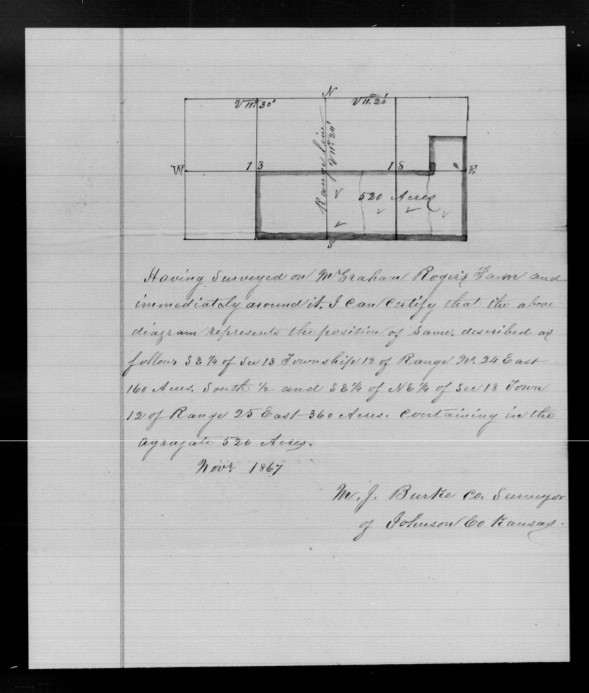 N
V 11° 30' V 11° 20'
Range line
V 11° 20'
W 13 18 E
520 Acres
S
Having Surveyed on Mr Graham Roger's Farm and
immediately around it. I Can Certify that the above
diagram represents the position of Same, described as
follows S E ¼ of Sec 13 Township 12 of Range No. 24 East
160 Acres. South ½ and S E ¼ of N E ¼ of Sec 18 Town
12 of Range 25 East 360 Acres. Containing in the
agragate 520 Acres.
Novr 1867
M. J. Burke Co. Surveyor
of Johnson Co Kansas.